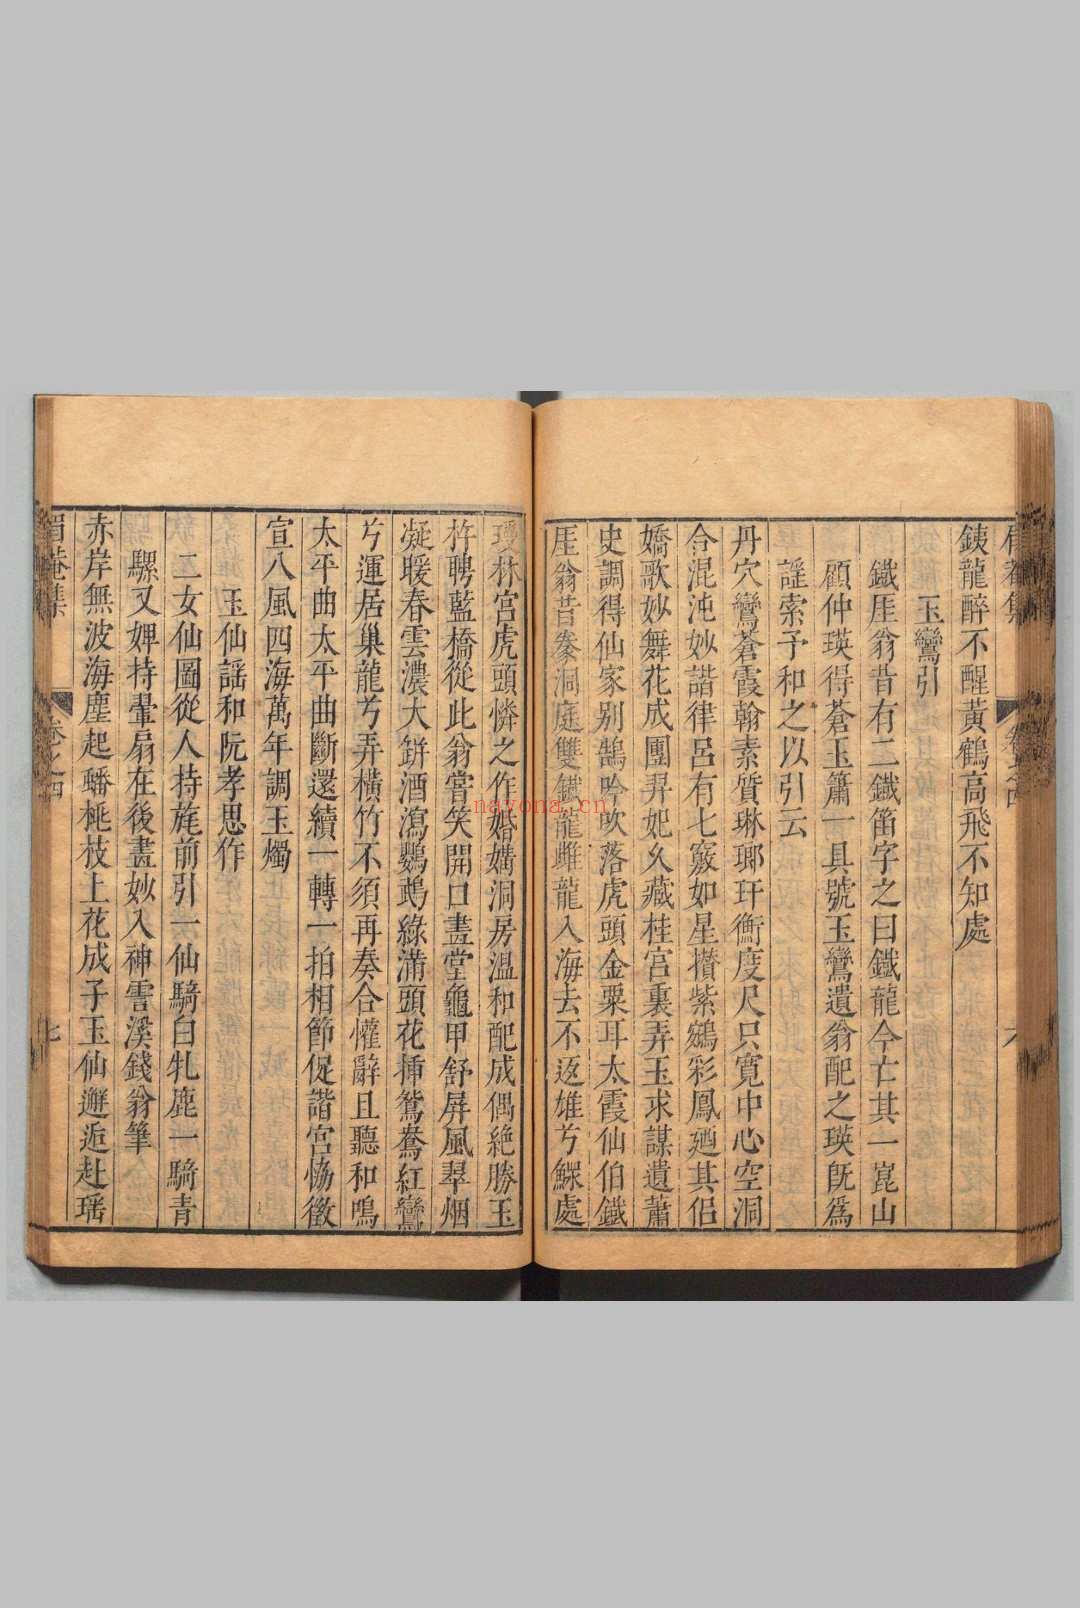 鐵龍醉不醒黃鶴高飛不知處
玉鸞引
鐵厓翁昔有二鐵笛字之曰鐵龍今亡其一崑山
顧仲瑛得蒼玉簫一具號玉鸞遺翁配之瑛旣爲
謡索予和之以引云
丹穴鸞蒼霞翰素質琳瑯玕衡度尺只寬中心空洞
含混沌妙諧律呂有七竅如星攢紫鵷彩鳳廼其侶
嬌歌妙舞花成團羿妃久藏桂宮裏弄玉求謀遺蕭
史調得仙家别鵠吟吹落虎頭金粟耳太霞仙伯鐵
厓翁昔豢洞庭雙鐵龍雌龍入海去不返雄兮鰥處
瓊林宮虎頭憐之作婚媾洞房溫和配成偶絶勝玉
杵聘藍橋從此翁嘗笑開口畫堂龜甲舒屏風翠烟
凝暖春雲濃大缾酒瀉鸚鵡綠滿頭花揷鴛鴦紅鸞
兮運居巢龍兮弄橫竹不須再奏合懽辭且聽和鳴
太平曲太平曲斷還續一轉一拍相節促諧宮恊徵
宣八風四海萬年調玉燭
玉仙謡和阮孝思作
二女仙圖從人持旄前引一仙騎白牝鹿一騎青
騾又婢持翬扇在後畫妙入神霅溪錢翁筆
赤岸無波海塵起蟠桃枝上花成子玉仙邂逅赴瑶
眉菴集
卷之四
七
nayona.cn